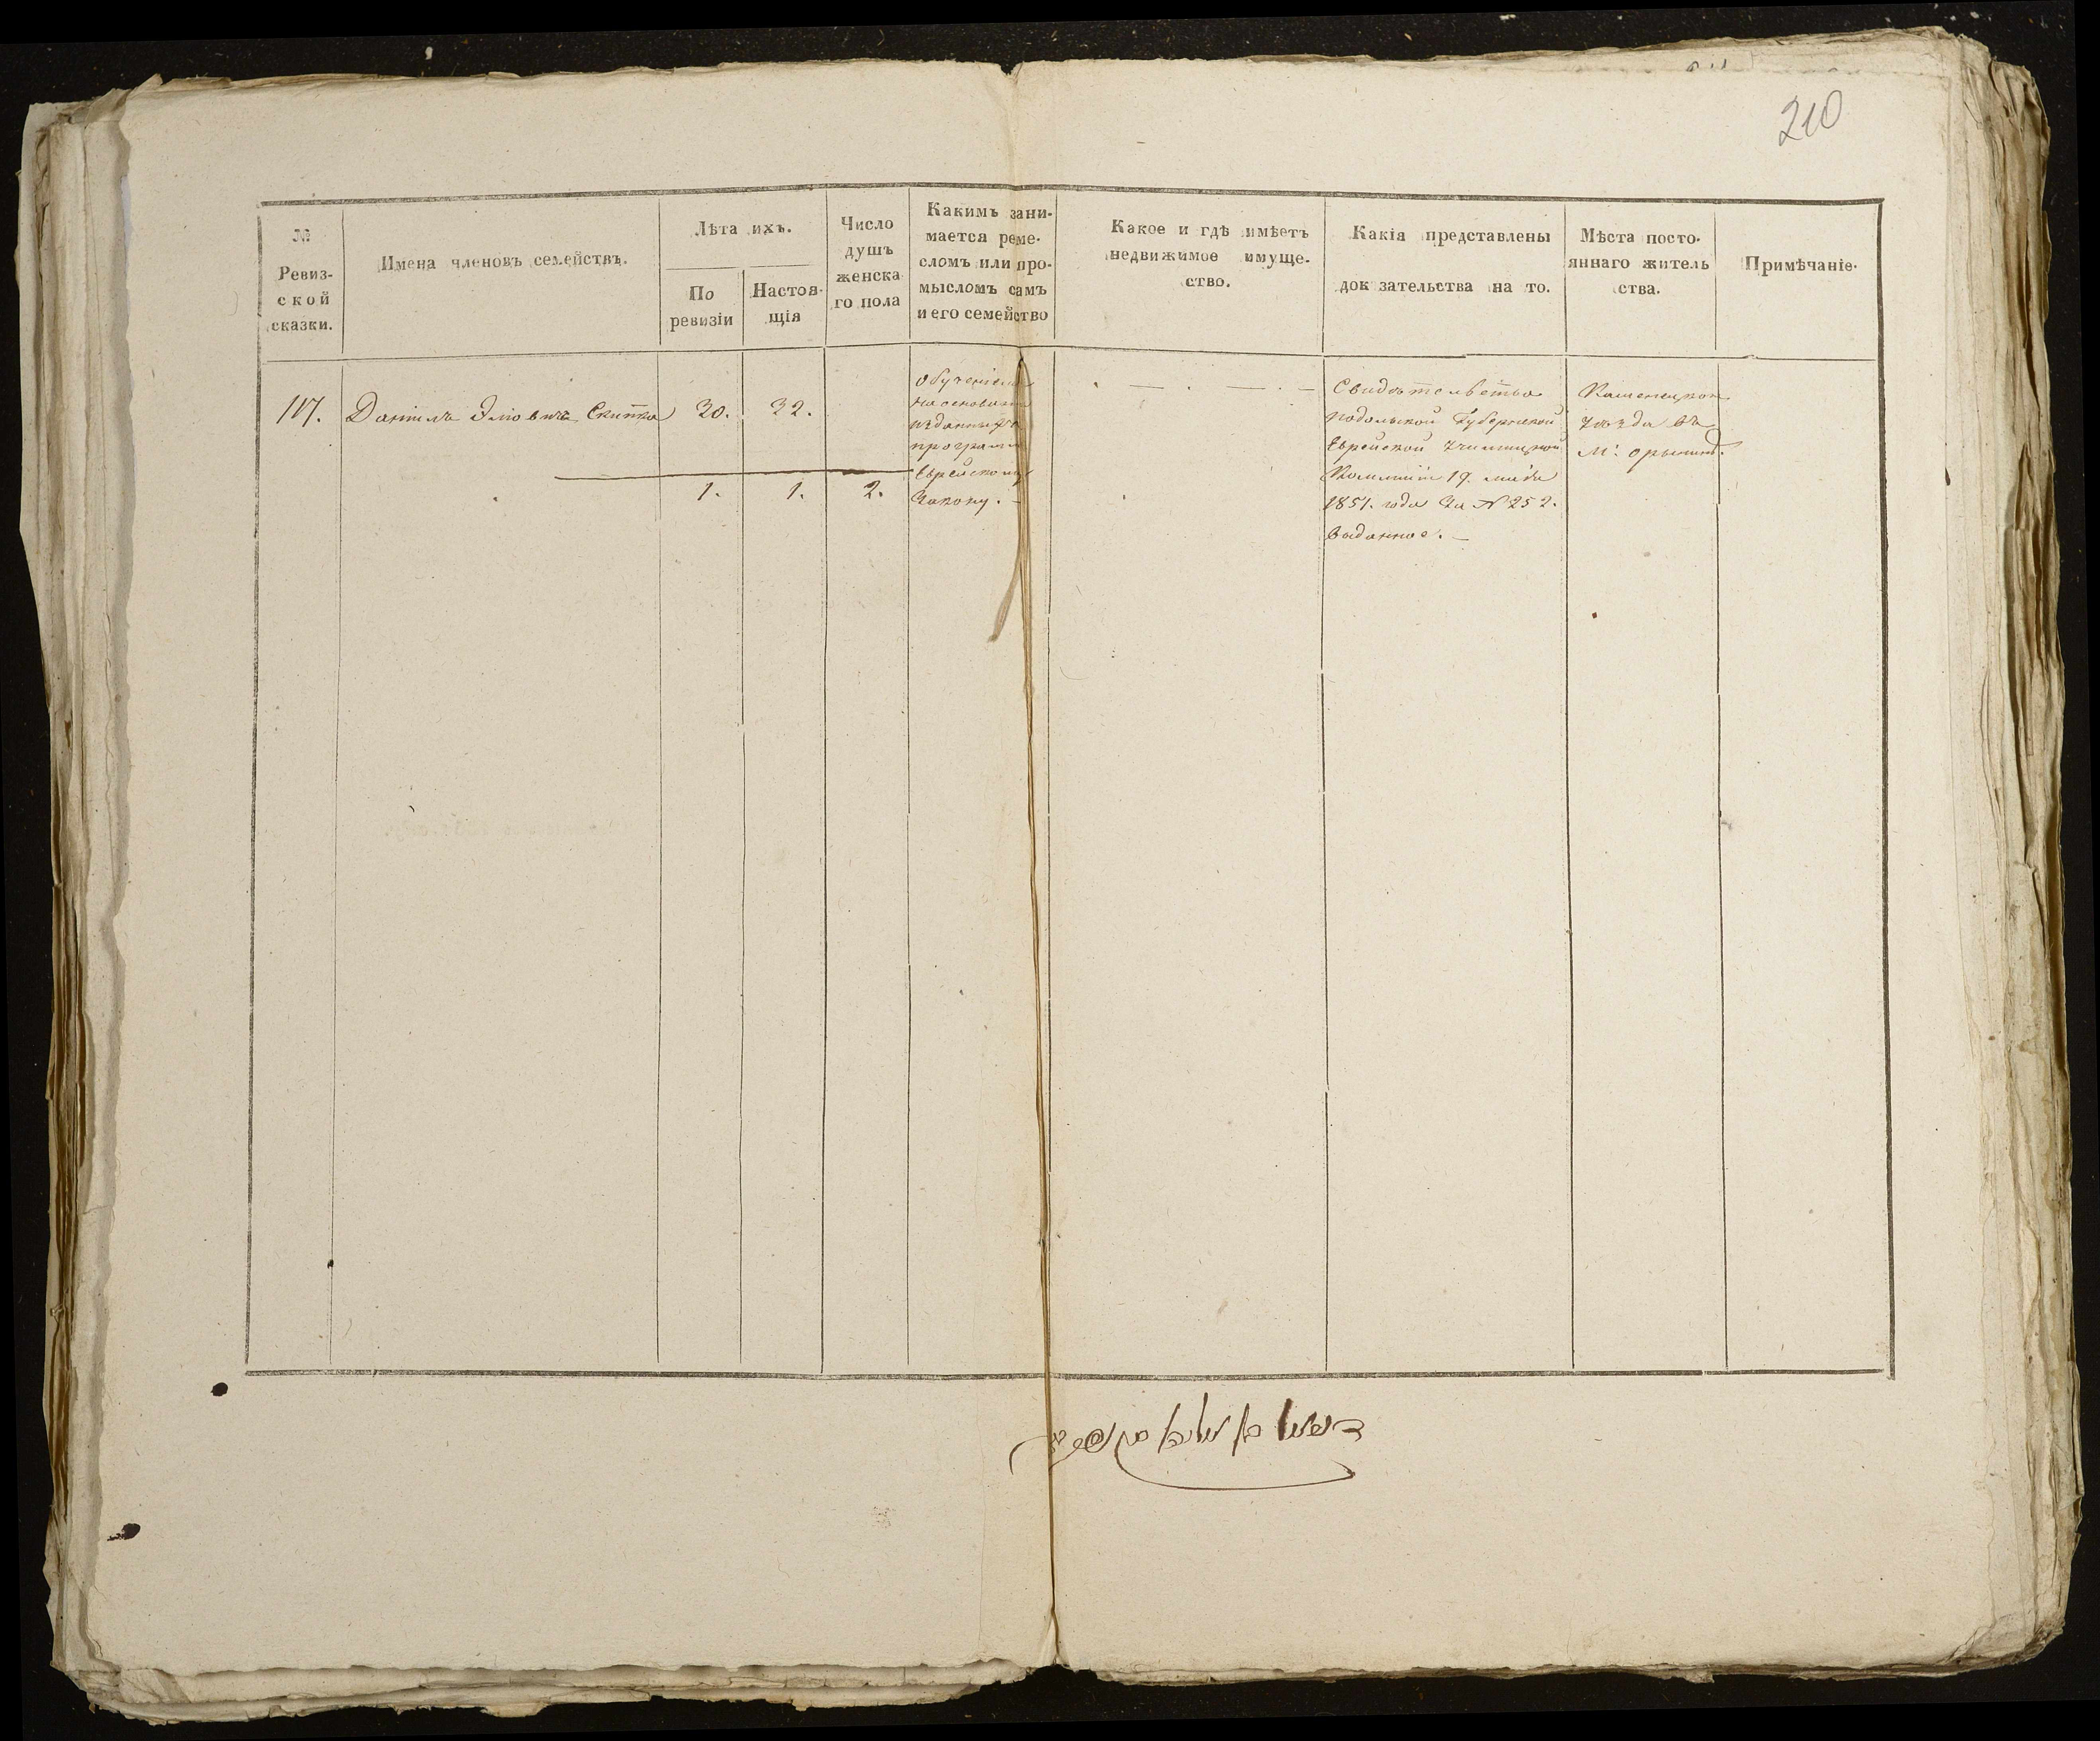 210
№ Ревизской сказки.
Имена членовъ семействъ.
Лѣта ихъ.
По ревизіи
Настоящія
Число душъ женскаго пола
Какимъ зани-
мается реме-
сломъ или про-
мысломъ самъ
и его семейство
Какое и гдѣ имѣетъ
недвижимое имуще-
ство.
Какія представлены
док зательства на то.
Мѣста посто-
яннаго житель
ства.
Примѣчаніе.
117. Даніилъ Скитка 30. 32.
1. 1. 2.
Обученіемъ
на основаніи
изданныхъ
программъ
Еврейскому
Закону.
Свидѣтельство
Подольской Губернской
Еврейской Училищной
Коммиіи 19. маія
1851. года За № 252.
выданное.
Каменецкого
уѣзда въ
М: Орынинѣ.